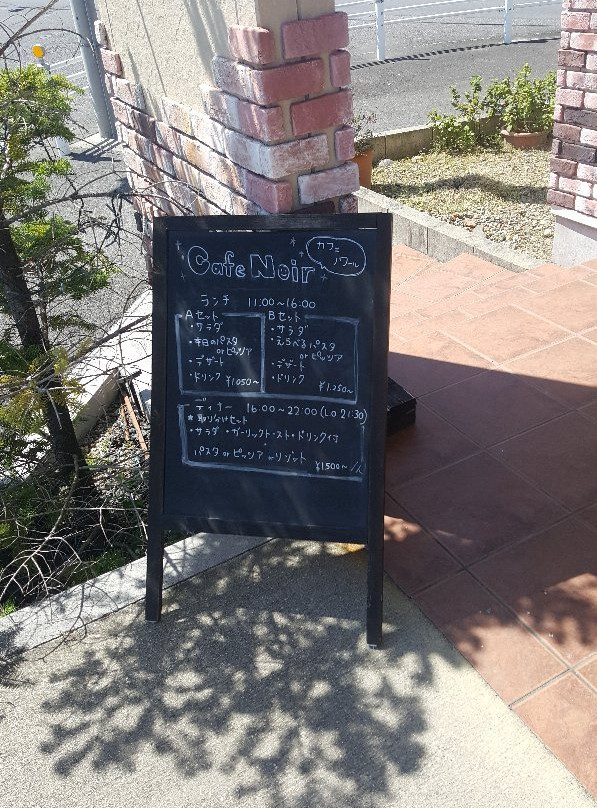 Cafe Noir
カフェ
ノワール
ランチ 11:00~16:00
Aセット
・サラダ
・本日のパスタ
orピッツア
・デザート
・ドリンク ¥1,050~
Bセット
・サラダ
・えらべるパスタ
orピッツア
・デザート
・ドリンク ¥1,250~
ディナー 16:00~22:00(Lo 21:30)
*取り分けセット
・サラダ・ガーリックトースト・ドリンク付
パスタ or ピッツア or リゾット ¥1,500~/人